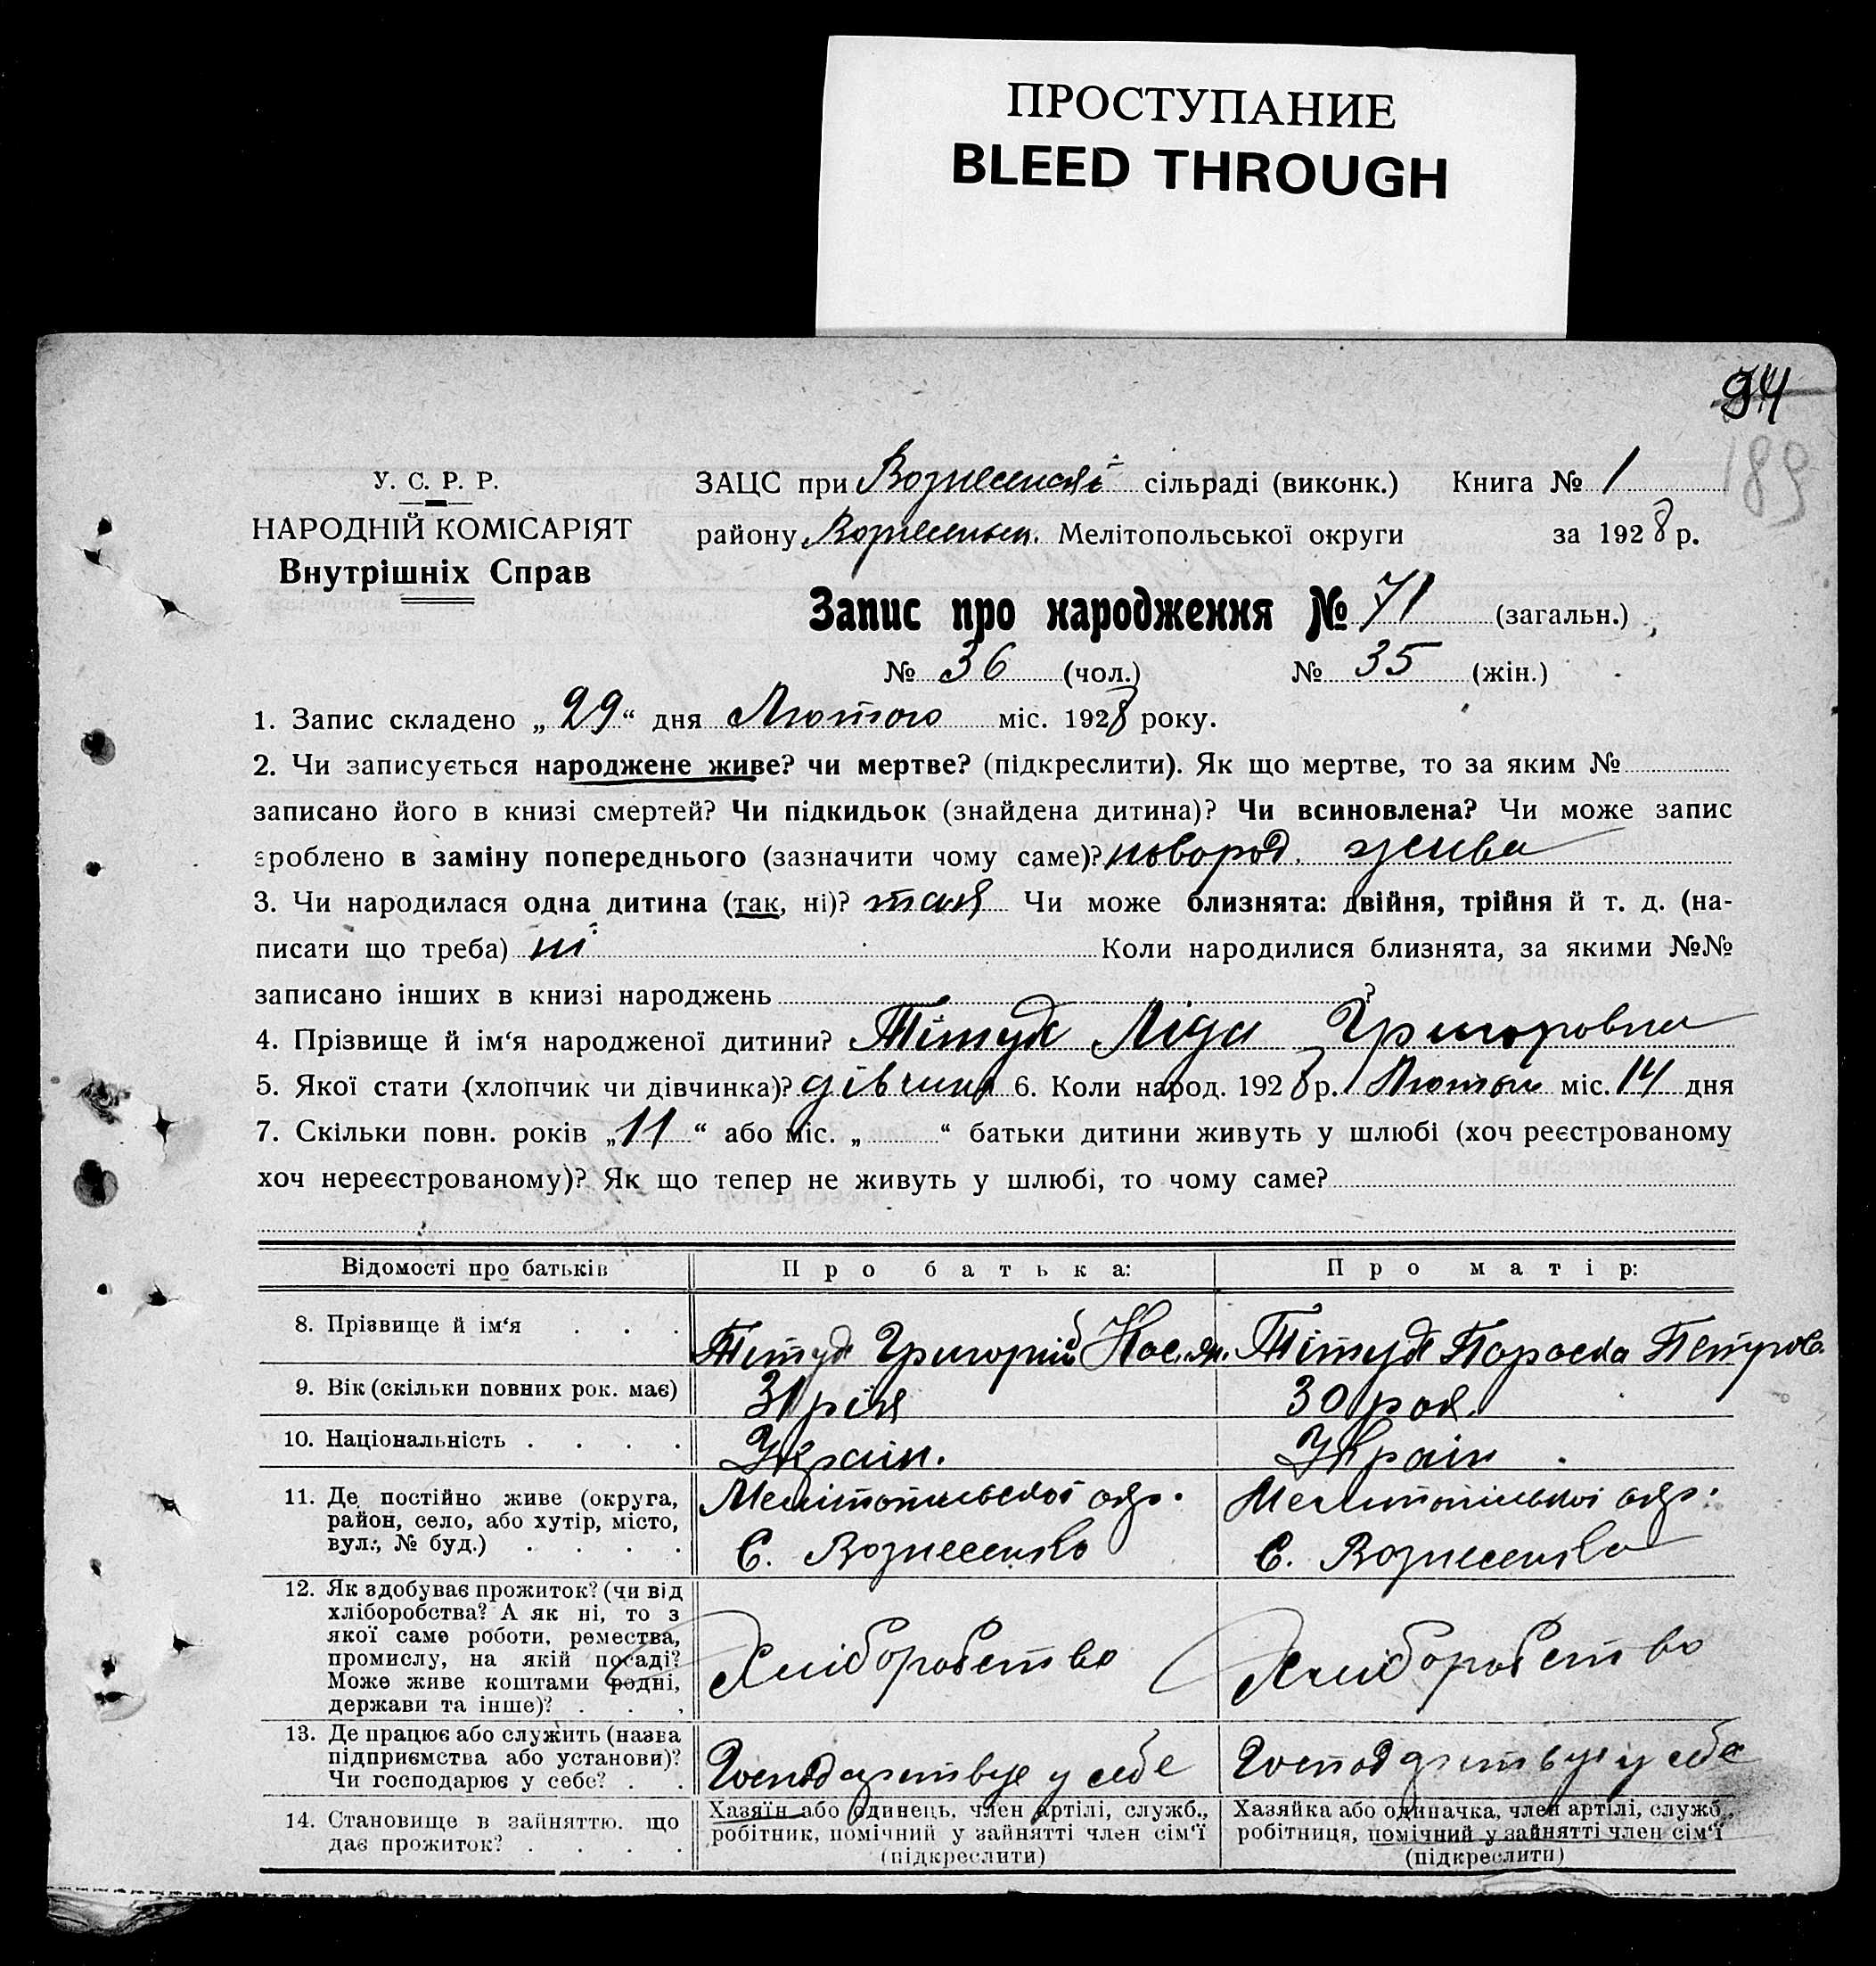 ПРОСТУПАНИЕ
BLEED THROUGH
94
189
У. С. Р. Р.
НАРОДНІЙ КОМІСАРІЯТ
Внутрішніх Справ
ЗАЦС при Вознесенскі сільраді (виконк.) Книга № 1
району Вознесенськ. Мелітопольської округи за 1928 р.
Запис про народження № 71 (загальн.)
№ 36 (чол.) № 35 (жін.)
1. Запис складено „29“ дня Лютого міс. 1928 року.
2. Чи записується народжене живе? чи мертве? (підкреслити). Як що мертве, то за яким №
записано його в книзі смертей? Чи підкидьок (знайдена дитина)? Чи всиновлена? Чи може запис
зроблено в заміну попереднього (зазначити чому саме)? новород. жива
3. Чи народилася одна дитина (так, ні)? так Чи може близнята: двійня, трійня й т. д. (на-
писати що треба) ні Коли народилися близнята, за якими №№
записано інших в книзі народжень ?
4. Прізвище й ім‘я народженої дитини? Тітук Ліда Григоровна
5. Якої стати (хлопчик чи дівчинка)? дівчина 6. Коли народ. 1928 р. Лютый міс. 14 дня
7. Скільки повн. років „11“ або міс. „ “ батьки дитини живуть у шлюбі (хоч реєстрованому
хоч нереєстрованому)? Як що тепер не живуть у шлюбі, то чому саме?
Відомості про батьків Про батька: Про матір:
8. Прізвище й ім‘я . . . Тітук Григорий Тітук Параска Петров.
9. Вік (скільки повних рок. має) 31 рік 30 рок.
10. Національність . . . . Украін. Украін.
11. Де постійно живе (округа,
район, село, або хутір, місто,
вул., № буд.) . . . .
Мелітопільскоі окр.
С. Вознесенко
Мелитопільскоі окр.
С. Вознесенка
12. Як здобуває прожиток? (чи від
хліборобства? А як ні, то з
якої саме роботи, ремества,
промислу, на якій посаді?
Може живе коштами родні,
держави та інше)? . . .
Хліборобство
Хліборобство
13. Де працює або служить (назва
підприємства або установи)?
Чи господарює у себе? . .
Господарствує у себе
Господарствує у себе
14. Становище в зайняттю, що
дає прожиток? . . . .
Хазяїн або одинець, член артілі, служб.,
робітник, помічний у зайнятті член сім‘ї
(підкреслити)
Хазяйка або одиначка, член артілі, служб.,
робітниця, помічний у зайнятті член сім‘ї
(підкреслити)